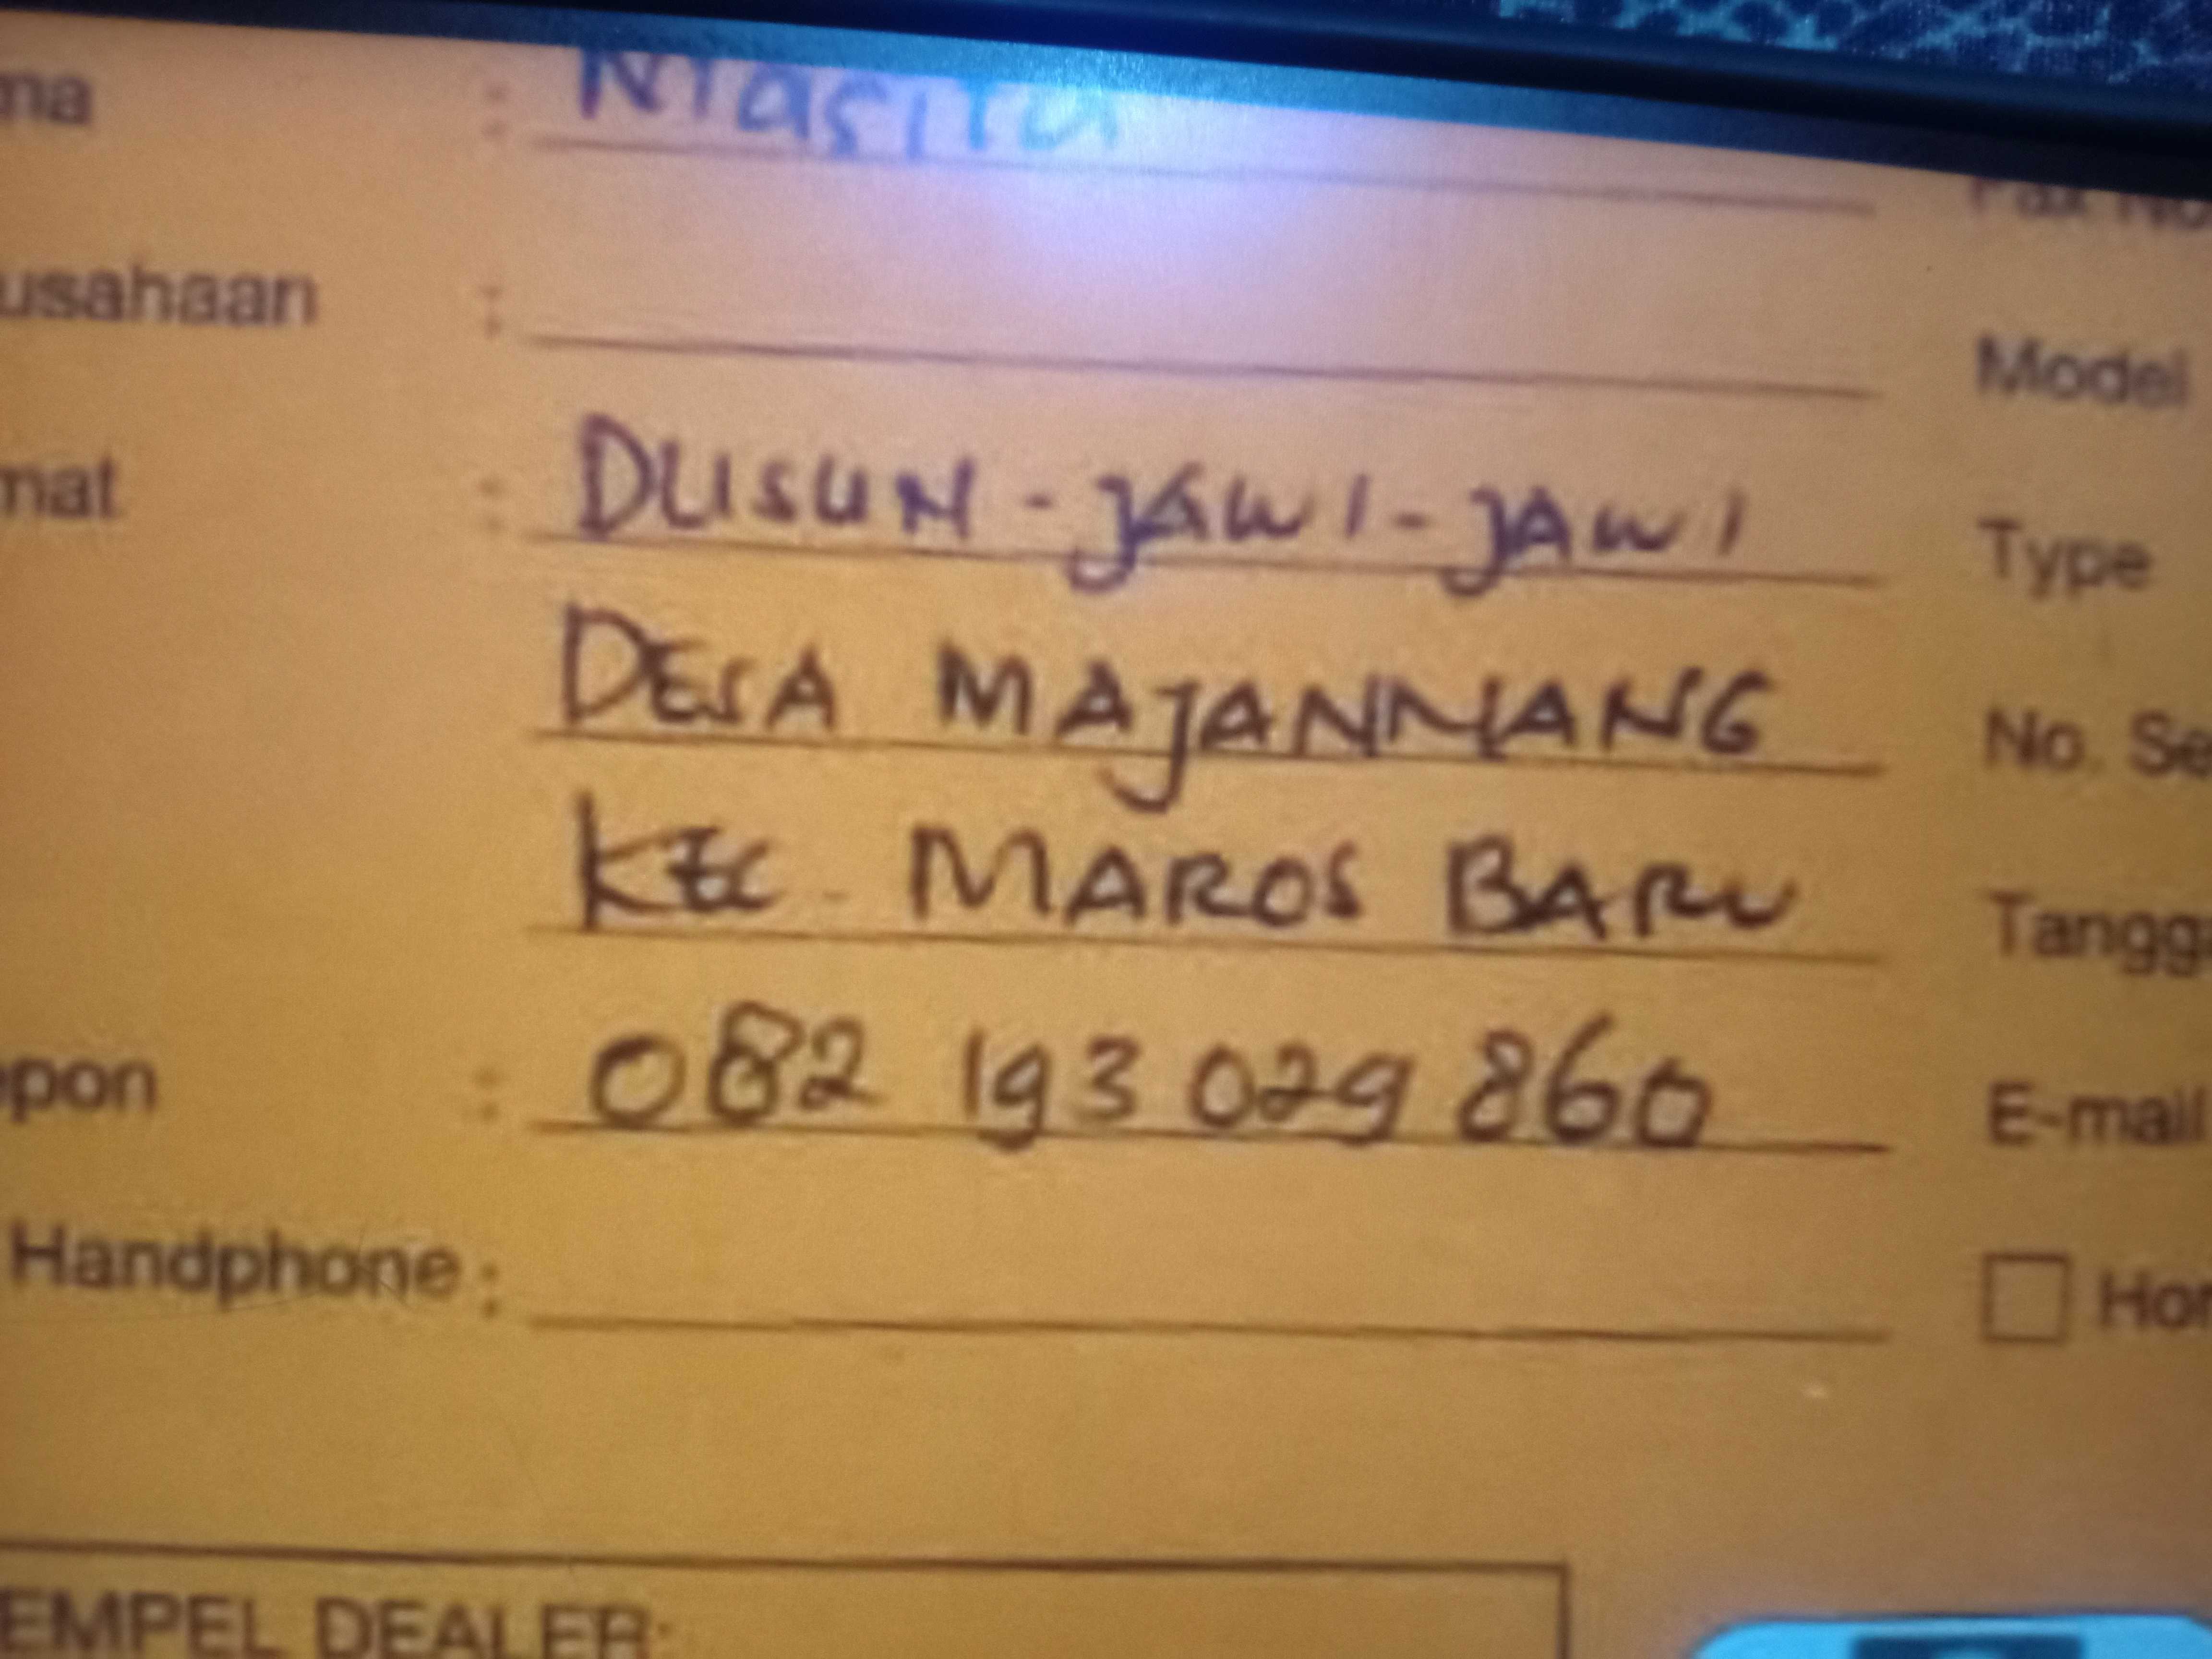 ma :
Fax No
usahaan :
Model
mat : DUSUN - JAWI - JAWI
Type
DESA MAJANNANG
No. Se
KEC - MAROS BARU
Tangga
pon : 082 193 029 860
E-mail
Handphone :
Hor
EMPEL DEALER: